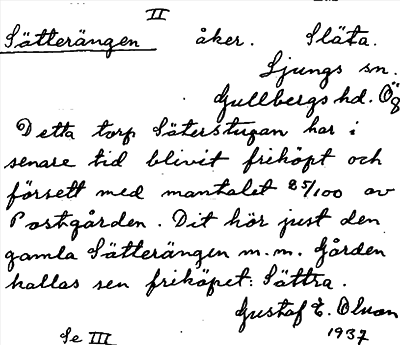 II
Sätterängen åker. Släta.
Ljungs sn.
Gullbergs hd. Ög
Detta torp Säterstugan har i
senare tid blivit friköpt och
försett med mantalet 25/100 av
Postgården. Dit hör just den
gamla Sätterängen m.m. Gården
kallas sen friköpet: Sättra.
Gustaf E. Olsson
1937
Se III